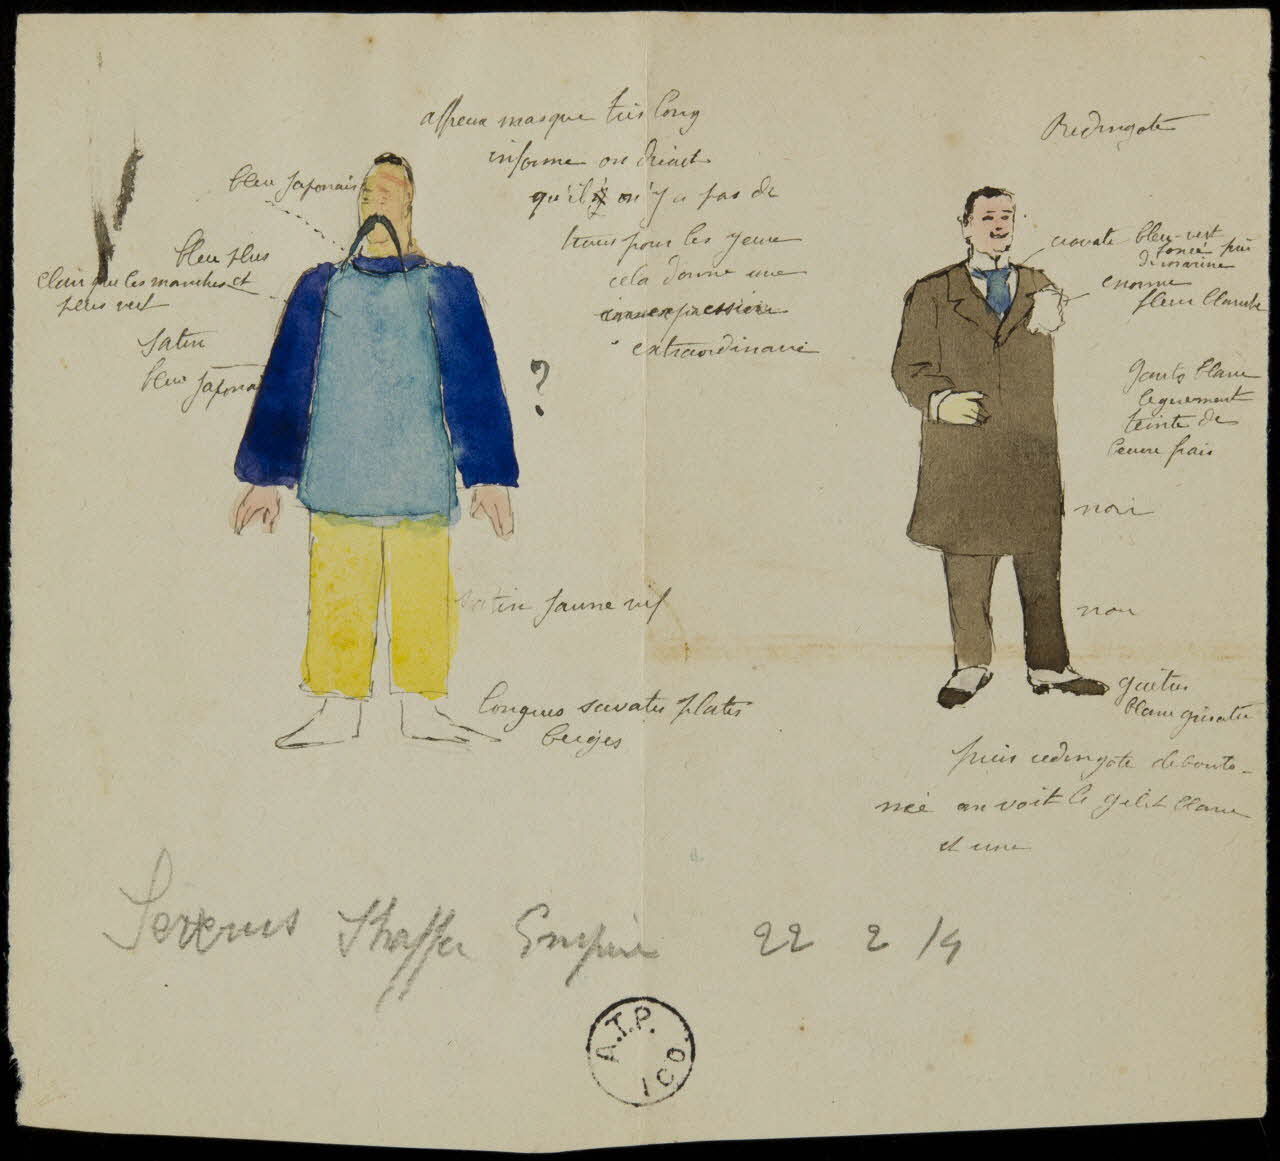 affreux masque très long
informe on dirait
qu'il n'y a pas de
trous pour les yeux
cela donne une
inexpression
extraordinaire
bleu japonais
bleu plus
clair que les manches et
plus vert
satin
bleu japonais
?
satin jaune vif
longues savates plates
beiges
Redingote
cravate bleu-vert
foncé
marine
enorme
fleur blanche
gants blanc
legerement
teinte de
beurre frais
noir
noir
guetres
blanc grisatre
puis redingote debouto-
née on voit le gilet blanc
et une
Severus Shaffer Empire 22 2 14
A.T.P.
ICO.